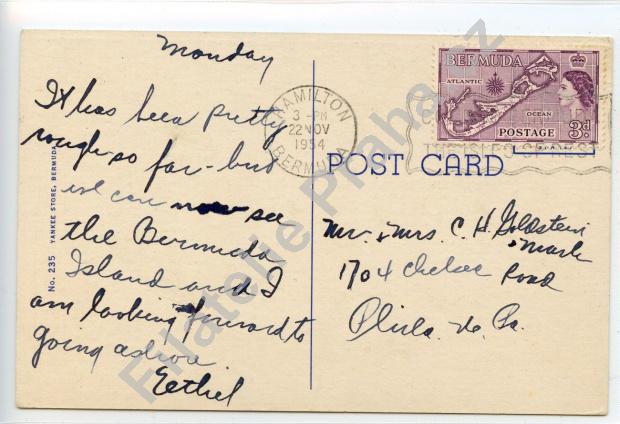 Monday
It has been pretty
rough so far - but
we can now see
the Bermuda
Island and I
am looking forward to
going ashore
Eethel
No. 235 YANKEE STORE, BERMUDA
HAMILTON
3 - PM
22 NOV
1954
BERMUDA
BERMUDA
ATLANTIC
OCEAN
POSTAGE
3d
POST CARD
Mr. & Mrs. C. H. Goldstein
& Mark
1704 Chelsea Road
Phila. Pa.
Filatelie Praha cz